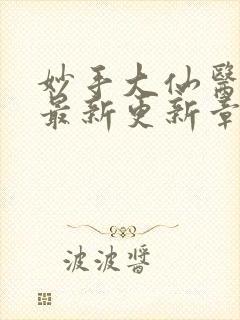 妙手大仙醫
最新更新章
波波醬